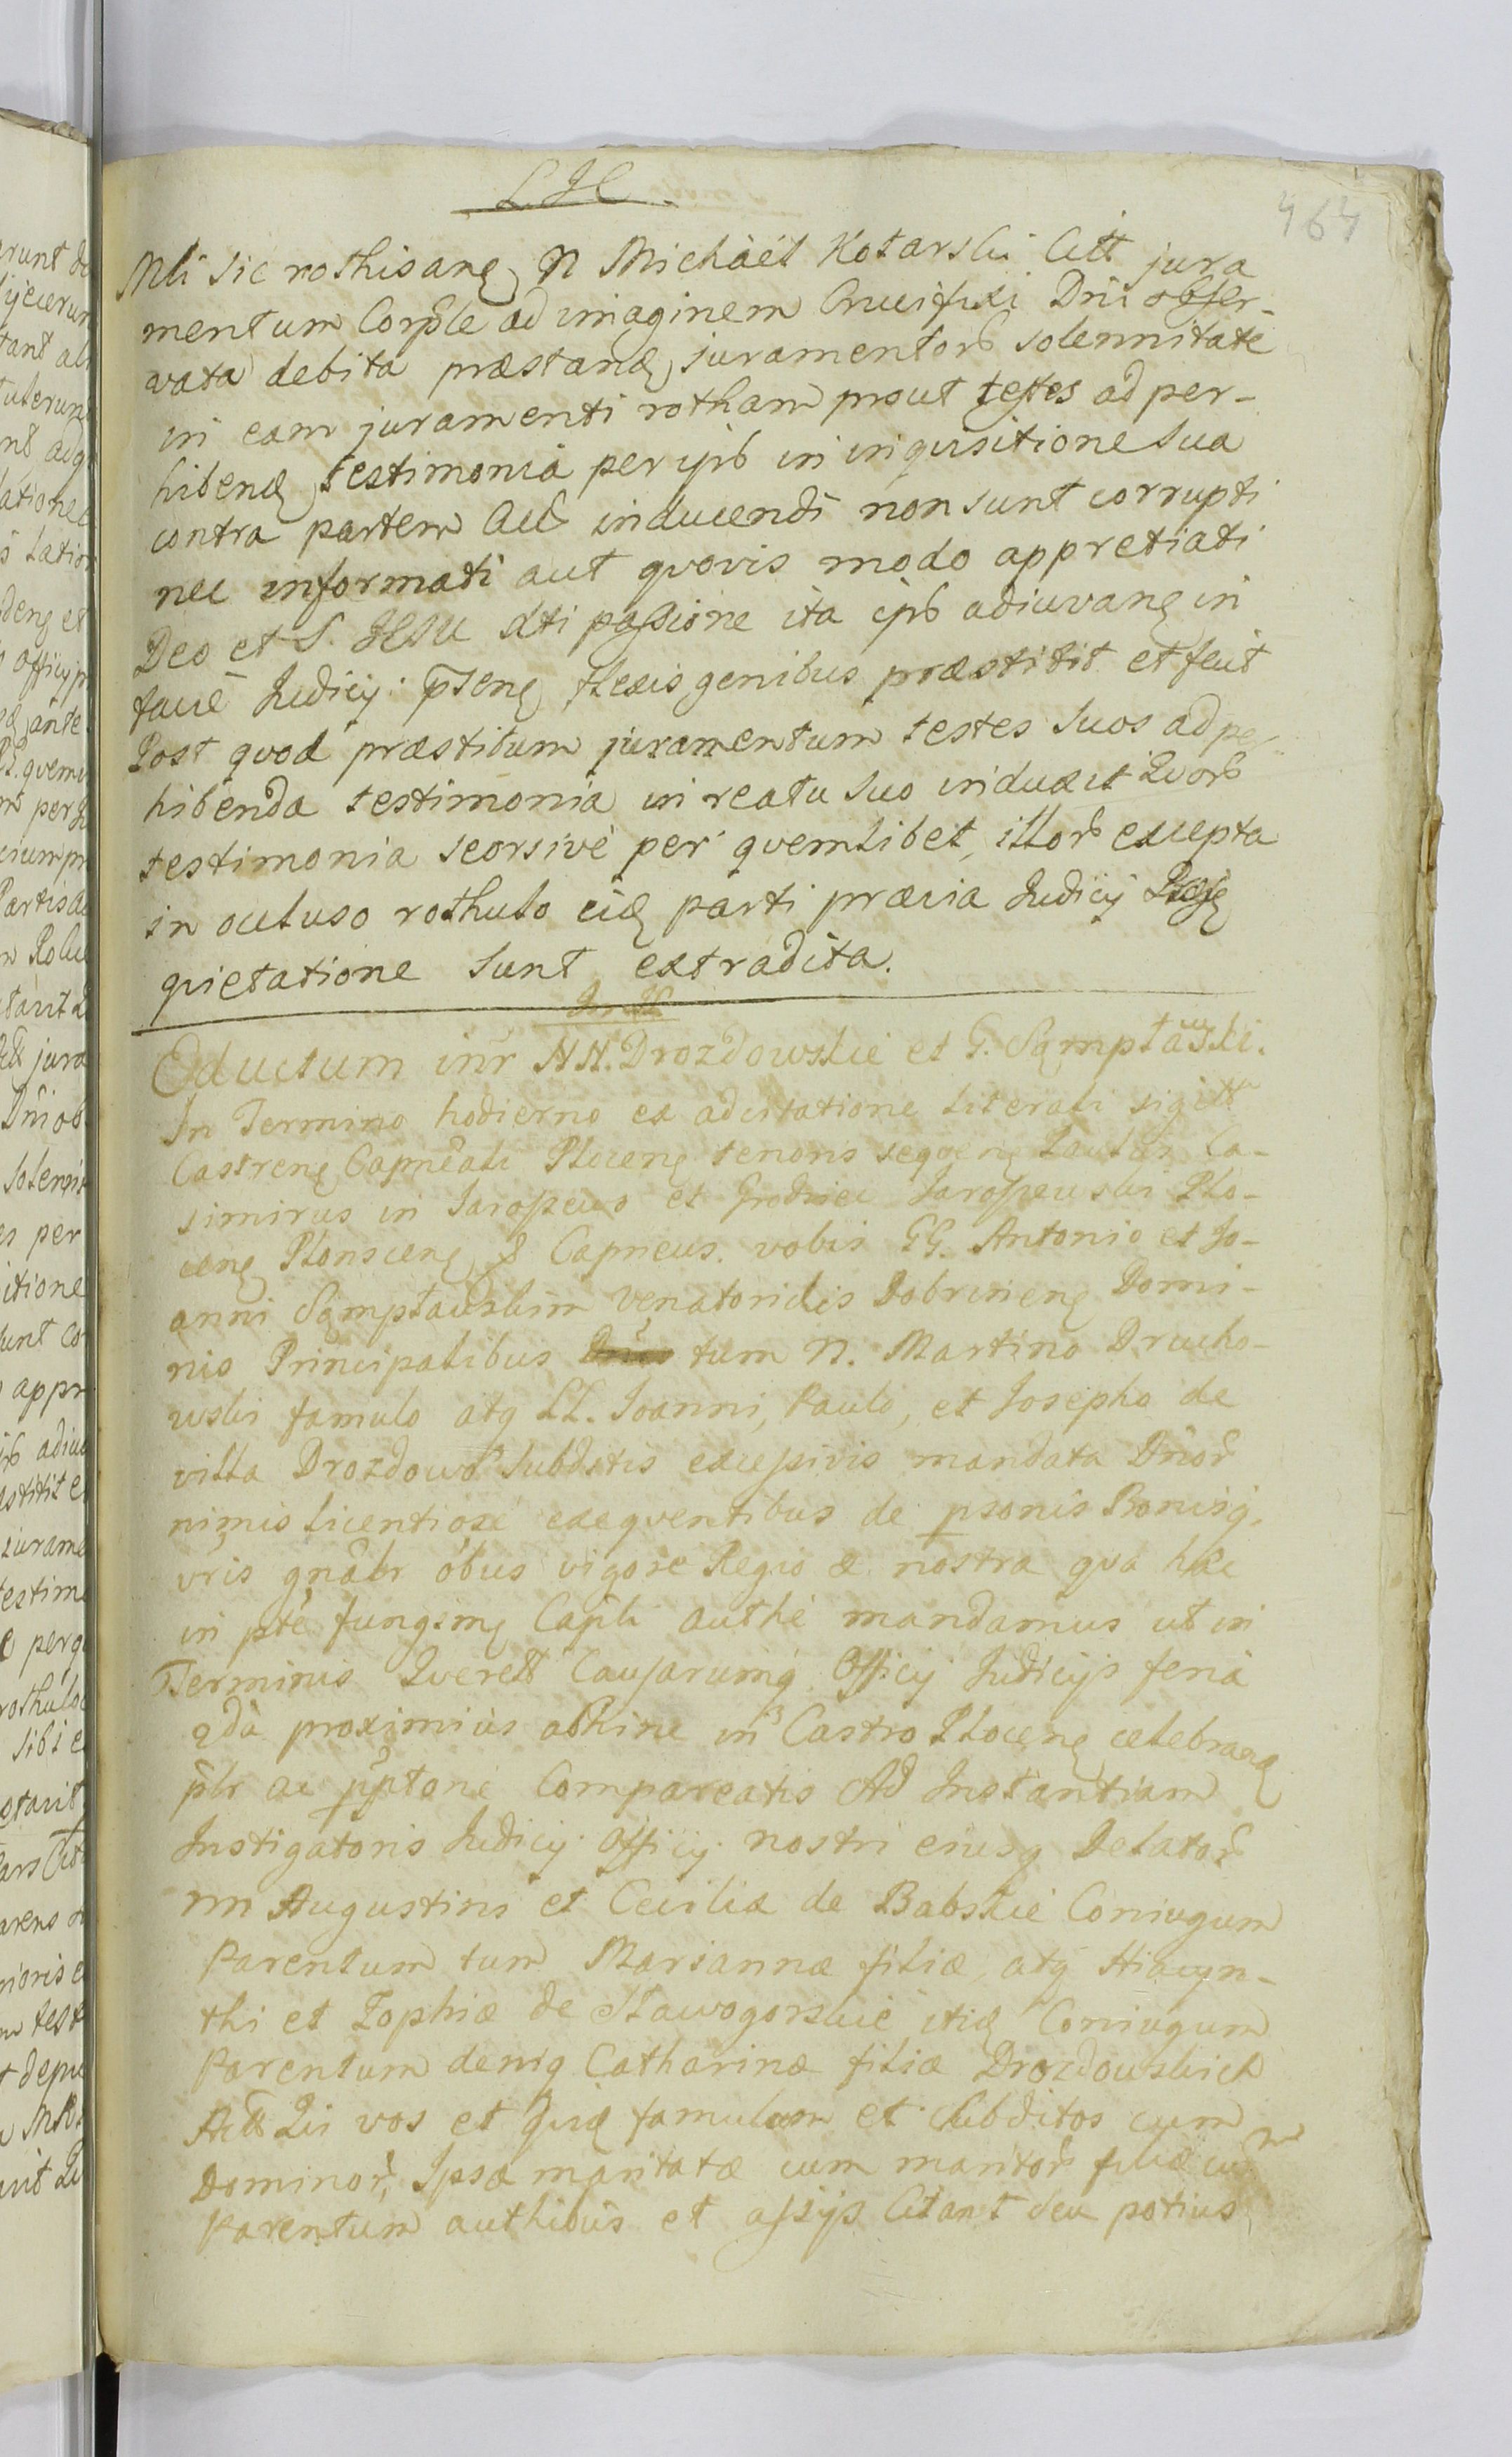 464
Mli sic rothisanę N Michaël Kotarski Citt jura
mentum Corple ad imaginem Crucifixi Dni obser-
vata debita præstandę juramentorum solennitate
in eam juramenti rotham prout testes ad per-
hibendę testimonia per ipsum in inquisitione sua
contra partem Act inducendi non sunt corrupti
nec informati aut qvovis modo appretiati
Deo et S. JESU Xti passione ita ipsum adiuvanę in
facie Judicij pntenę flexis genibus præstitit et fecit
Post qvod præstitum juramentum testes suos ad per
hibenda testimonia in reatu suo induxit Qvorum
testimonia seorsive per qvemlibet illorum excepta
in ocluso rothulo eidę parti prævia Judicij
qvietatione sunt extradita.
Eductum intr NN. Drozdowskie et G. Sąmptawski.
In Termino hodierno ex adcitatione literali sigill
Castrenę Capneali Plocenę tenoris seqvenę Laulus Ca-
simirus in Saropewo et Grodziec Saropewski Plo-
cenę Plonscenę & Capneus. vobis GG. Antonio et Jo-
anni Sąmptawskim Venatoridis Dobrinenę Domi-
nis Principalibus tum N. Martino Drucho-
wski famulo atq LL. Joanni, Paulo, et Josepho de
villa Drozdowo Subditis excessivis mandata Dnor
nimis licentiose exeqventibus de psonis Bonisq,
vris gnalr obus vigore Regio & nostra qva hac
in pte fungimę Capli authe mandamus ut in
Terminis Qverell Causarumq Officij Judicijs feria
2da proximius abhinc in Castro Plocenę celebrandę
plr ac pptorie Compareatis Ad Instantiam
Instigatoris Judicij Officij nostri eiusq Delator
nn Augustini et Ceciliæ de Babskie Coniugum
Parentum tum Mariannæ filiæ, atq Hiacyn-
thi et Zophiæ de Stawogorskie itidę Coniugum
Parentum deniq Catharinæ filiæ Drozdowskich
Act Qui vos et Qvidę famulum et Subditos cum
Dominor, Ipsæ maritatæ cum maritor filiæ cum
Parentum authibus et assijs Citant seu potius